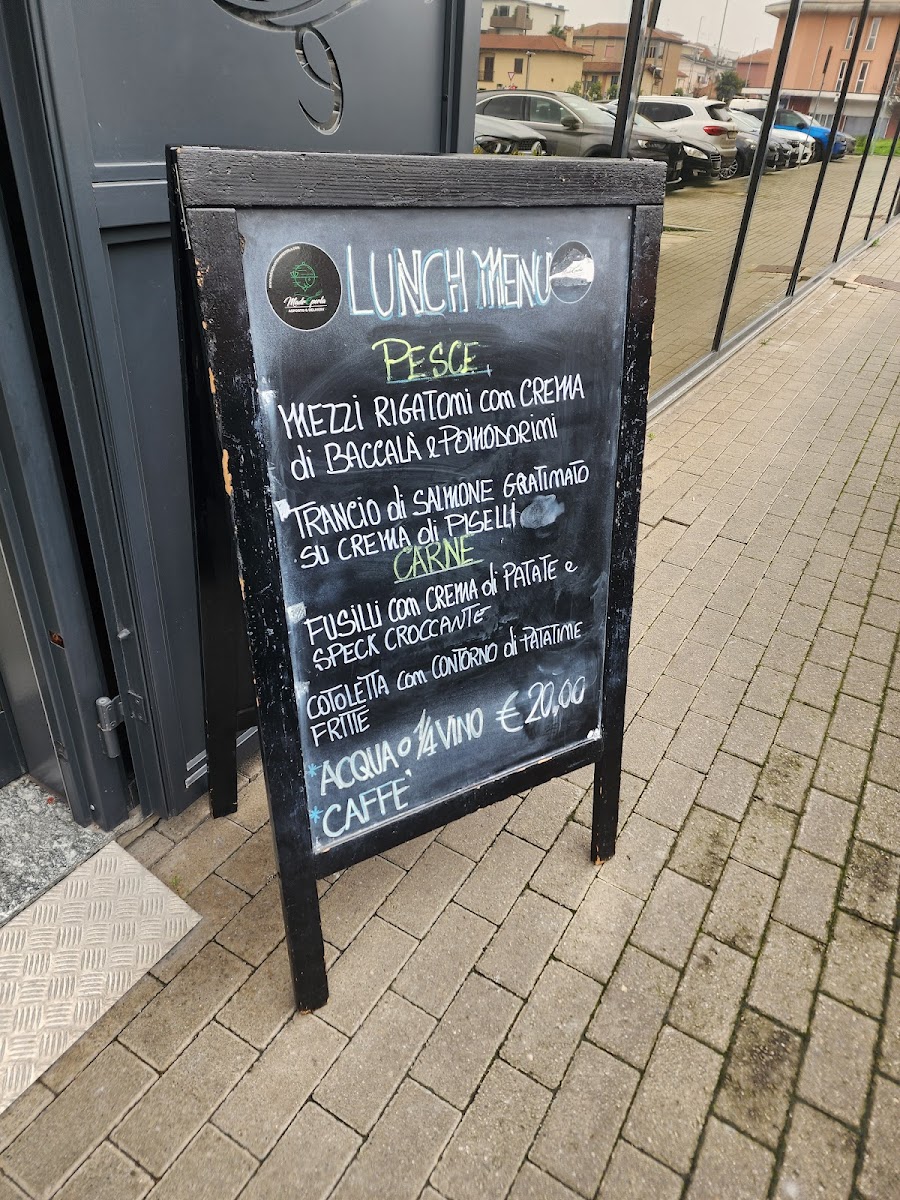 LUNCH MENU
MadrePerla
ASPORTO & DELIVERY
PESCE
MEZZI RIGATONI con CREMA
di BACCALÀ e POMODORINI
TRANCIO di SALMONE GRATINATO
SU CREMA di PISELLI
CARNE
FUSILLI con CREMA di PATATE e
SPECK CROCCANTE
COTOLETTA con CONTORNO di PATATINE
FRITTE
*ACQUA o 1/4 VINO €20,00
*CAFFE'